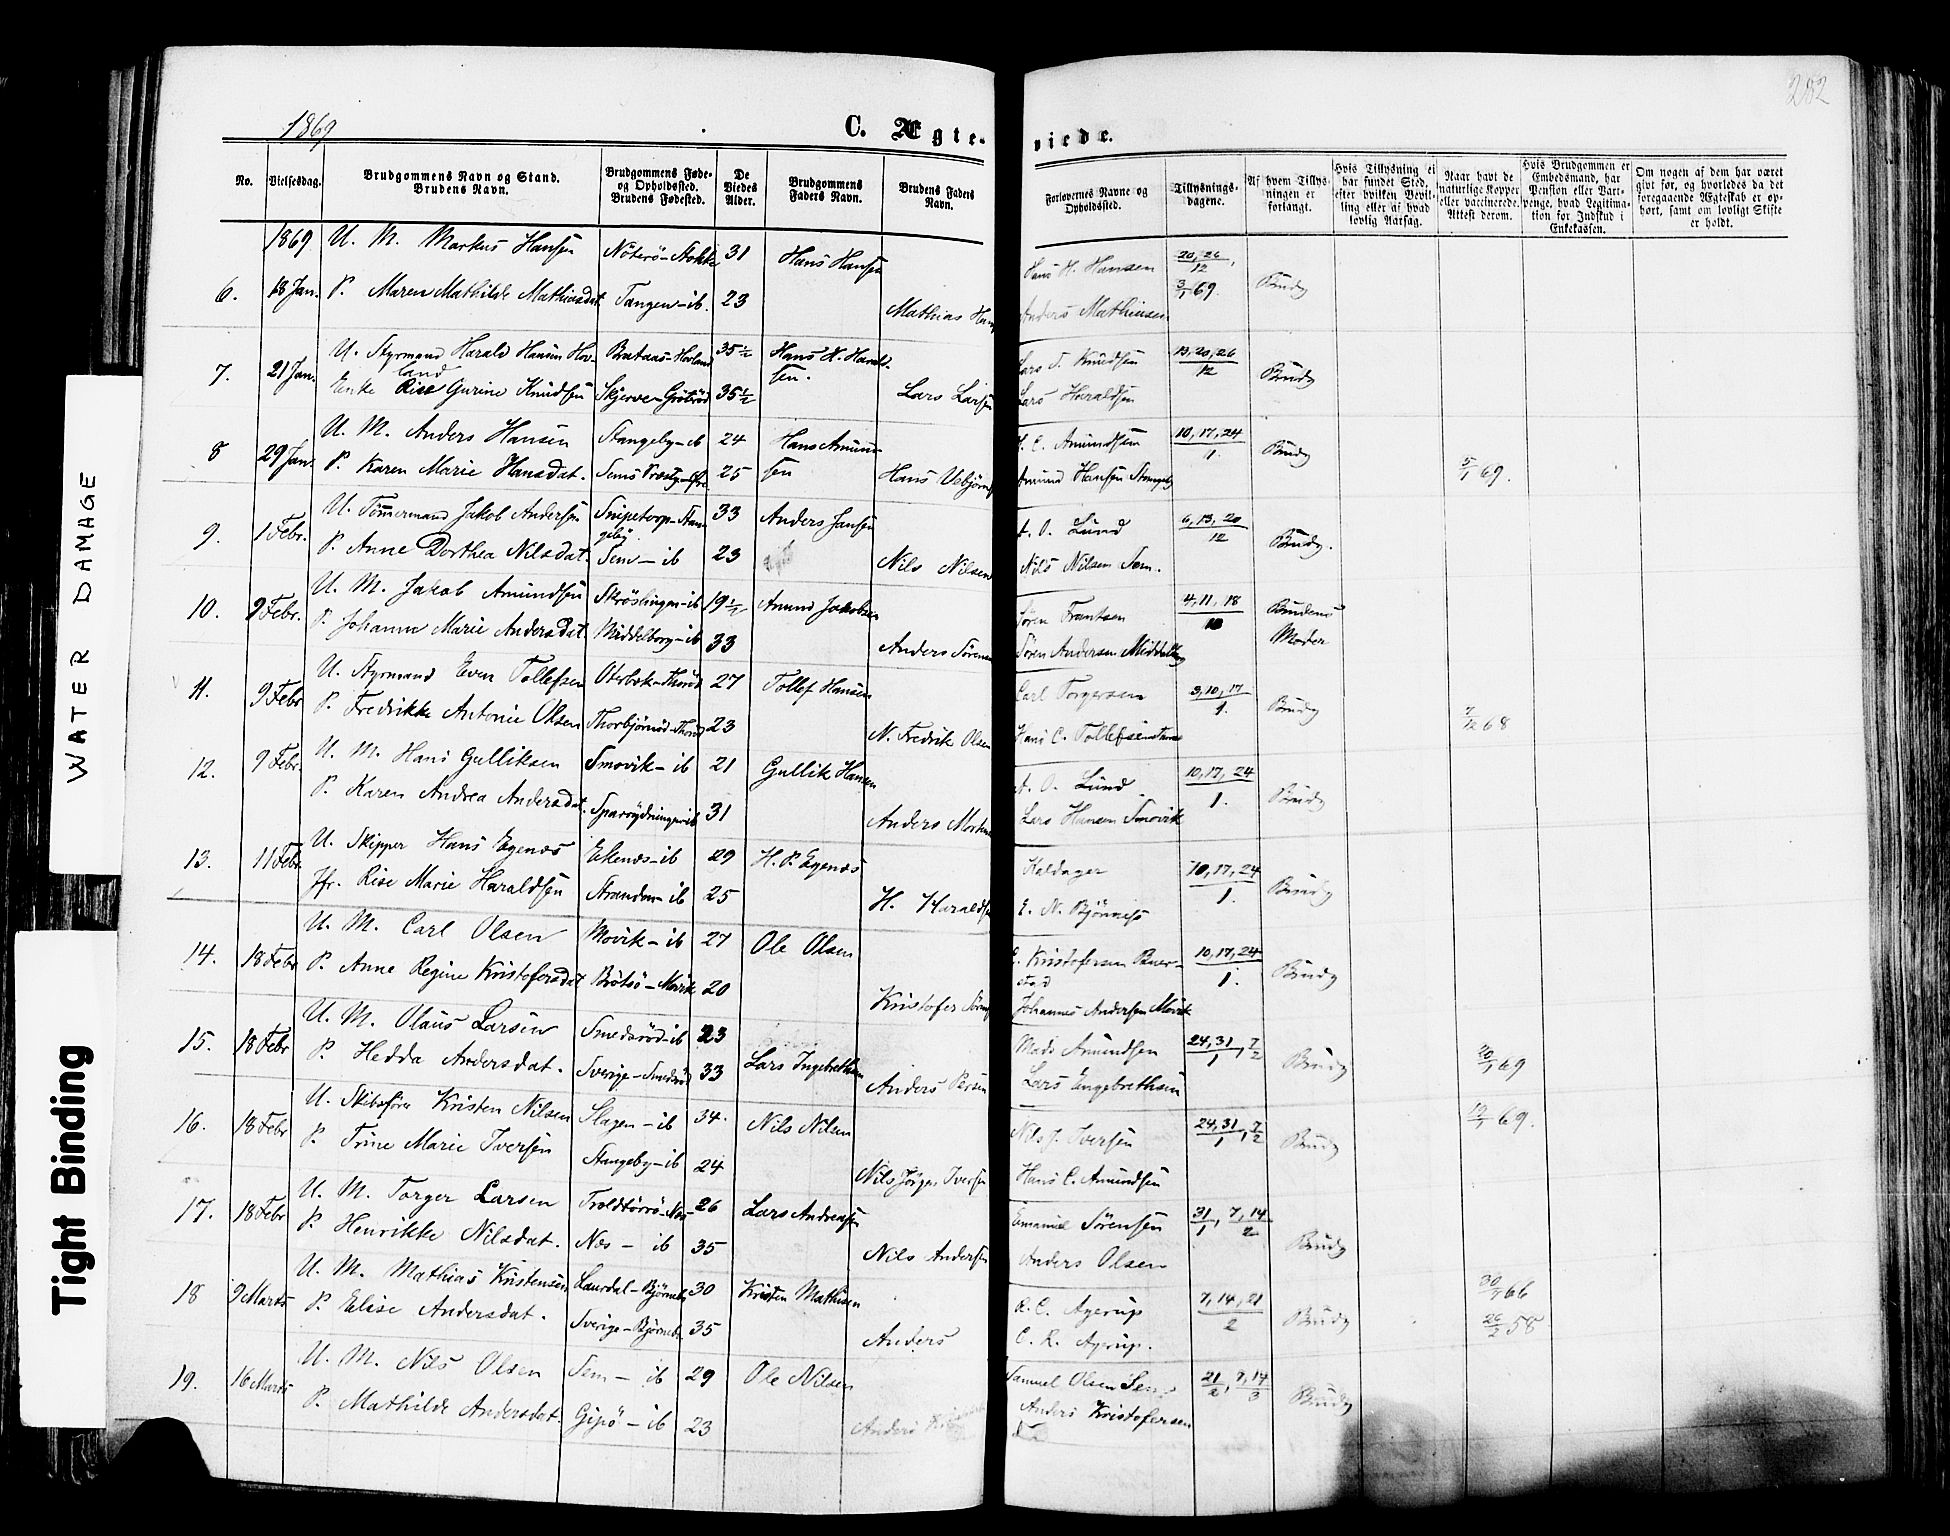 282
1869
C. Ægte-viede.
No.
Vielsesdag.
Brudgommens Navn og Stand.
Brudens Navn.
Brudgommens Føde-
og Opholdssted.
Brudens Fødested.
De
Viedes
Alder.
Brudgommens
Faders Navn.
Brudens Faders
Navn.
Forlovernes Navne og
Opholdssted.
Tillysnings-
dagene.
Af hvem Tillys-
ningen er
forlangt.
Hvis Tillysning ei
har fundet Sted,
efter hvilken Bevil-
ling eller af hvad
lovlig Aarsag.
Naar havt de
naturlige Kopper
eller vaccinerede.
Attest derom.
Hvis Brudgommen er
Embedsmand, har
Pension eller Vart-
penge, hvad Legitima-
tion for Indskud i
Enkekassen.
Om nogen af dem har været
gift før, og hvorledes da det
foregaaende Ægteskab er op-
hørt, samt om lovligt Skifte
er holdt.
1869 U. M. Markus Hansen Nøterö-Stokke 31 Hans Hansen Hans H. Hansen 20, 26/12, 3/1 69. Brudg
6. 18 Jan. P. Maren Mathilde Mathiasdat Tangen-ib. 23 Mathias Anders Mathiesen
7. 21 Jan. U. Styrmand Harald Hansen Hov- Brataas-Hovland 35 1/2 Hans H. Harald- Lars T. Knudsen 13, 20, 26/12 Brudg
land sen.
Enke Rise Gurine Knudsen Skjerve-Grötröd 35 1/2 Lars Larsen Lars Haraldsen
8 29 Jan. U. M. Anders Hansen Stangeby-ib 24 Hans Amund- H. C. Amundsen 10, 17, 24/1. Brudg
P. Karen Marie Hansdat. 25 sen Hans Amund Hansen Stangeby 5/1 69.
9. 1 Febr. U. Tömmermand Jakob Andersen Snipetorp-Stan- 33 Anders Jansen A. O. Lund 6, 13, 20/12 Brudg.
geby.
P. Anne Dorthea Nilsdat. Sem-ib 23 Nils Nilsen Nils Nilsen Sem.
10. 9 Febr. U. M. Jakob Amundsen Skröslingen-ib 19 1/2 Amund Jakobsen Sören Frantsen 4, 11, 18 Brudens
P. Johanne Marie Andersdat. Middelborg-ib 33 Anders Sörensen Sören Andersen Middelborg Moder
11. 9 Febr U. Styrmand Even Tollefsen Oterbek-Thoröd 27 Tollef Hansen Carl Torgersen 3, 10, 17/1. Brudg
P. Fredrikke Antonie Olsen Thorbjörnröd-Thoröd 23 N. Fredrik Olsen Hans C. Tollefsen 7/12 68
12. 9 Febr. U. M. Hans Gulliksen Smovik-ib 21 Gullik Hansen A. O. Lund 10, 17, 24/1. Brudg
P. Karen Andrea Andersdat. 31 Anders Lars Hansen Smovik
13. 11 Febr. U. Skipper Hans Egenæs Ekenæs-ib 29 H. P. Egenæs Kaldager 10, 17, 24/1. Brudg
Jfr. Rise Marie Haraldsen Stranden-ib 25 H. Haraldsen E. N. Bjönness
14. 18 Febr U. M. Carl Olsen Movik-ib 27 Ole Olsen Kristofersen 10, 17, 24/1. Brudg
P. Anne Regine Kristofersdat Brötsö-Movik 20 Kristofer Johannes Andersen Movik
15. 18 Febr U. M. Olaus Larsen Smedsröd-ib 23 Mads Amundsen 24, 31/1, 7/2 Brudg 20/1 69
P. Hedda Andersdat. Sverige-Smedsröd 33 Lars Ingebrethsen Anders Persen Lars Engebrethsen
16. 18 Febr U. Skibsförer Kristen Nilsen Slagen-ib 34. Nils Nilsen Nils J. Iversen 24, 31/1, 7/2 Brudg 19/1 69.
P. Trine Marie Iversen Stangeby-ib 24 Nils Jörgen Iversen Hans C. Amundsen
17. 18 Febr U. M. Torger Larsen Troldtörrö-Næs 26 Lars Andreasen Emanuel Sörensen 31/1, 7, 14/2 Brudg
P. Henrikke Nilsdat. Næs-ib 35 Nils Andersen Anders Olsen
18 9 Marts U. M. Mathias Kristensen Laurdal-Bjørnebo 30 Kristen Mathisen R. C. Agerup 7, 14, 21/2 Brudg 66
P. Elise Andersdat. Sverige-Bjørnebo 35 Anders C. R. Agerup. 26/2 58
19. 16 Marts U. M. Nils Olsen Sem-ib 29 Ole Nilsen Samuel Olsen Sem 21/2, 7, 14/3 Brudg
P. Mathilde Andersdat. Gipö-ib 23 Anders Anders Kristofersen
WATER DAMAGE
Tight Binding